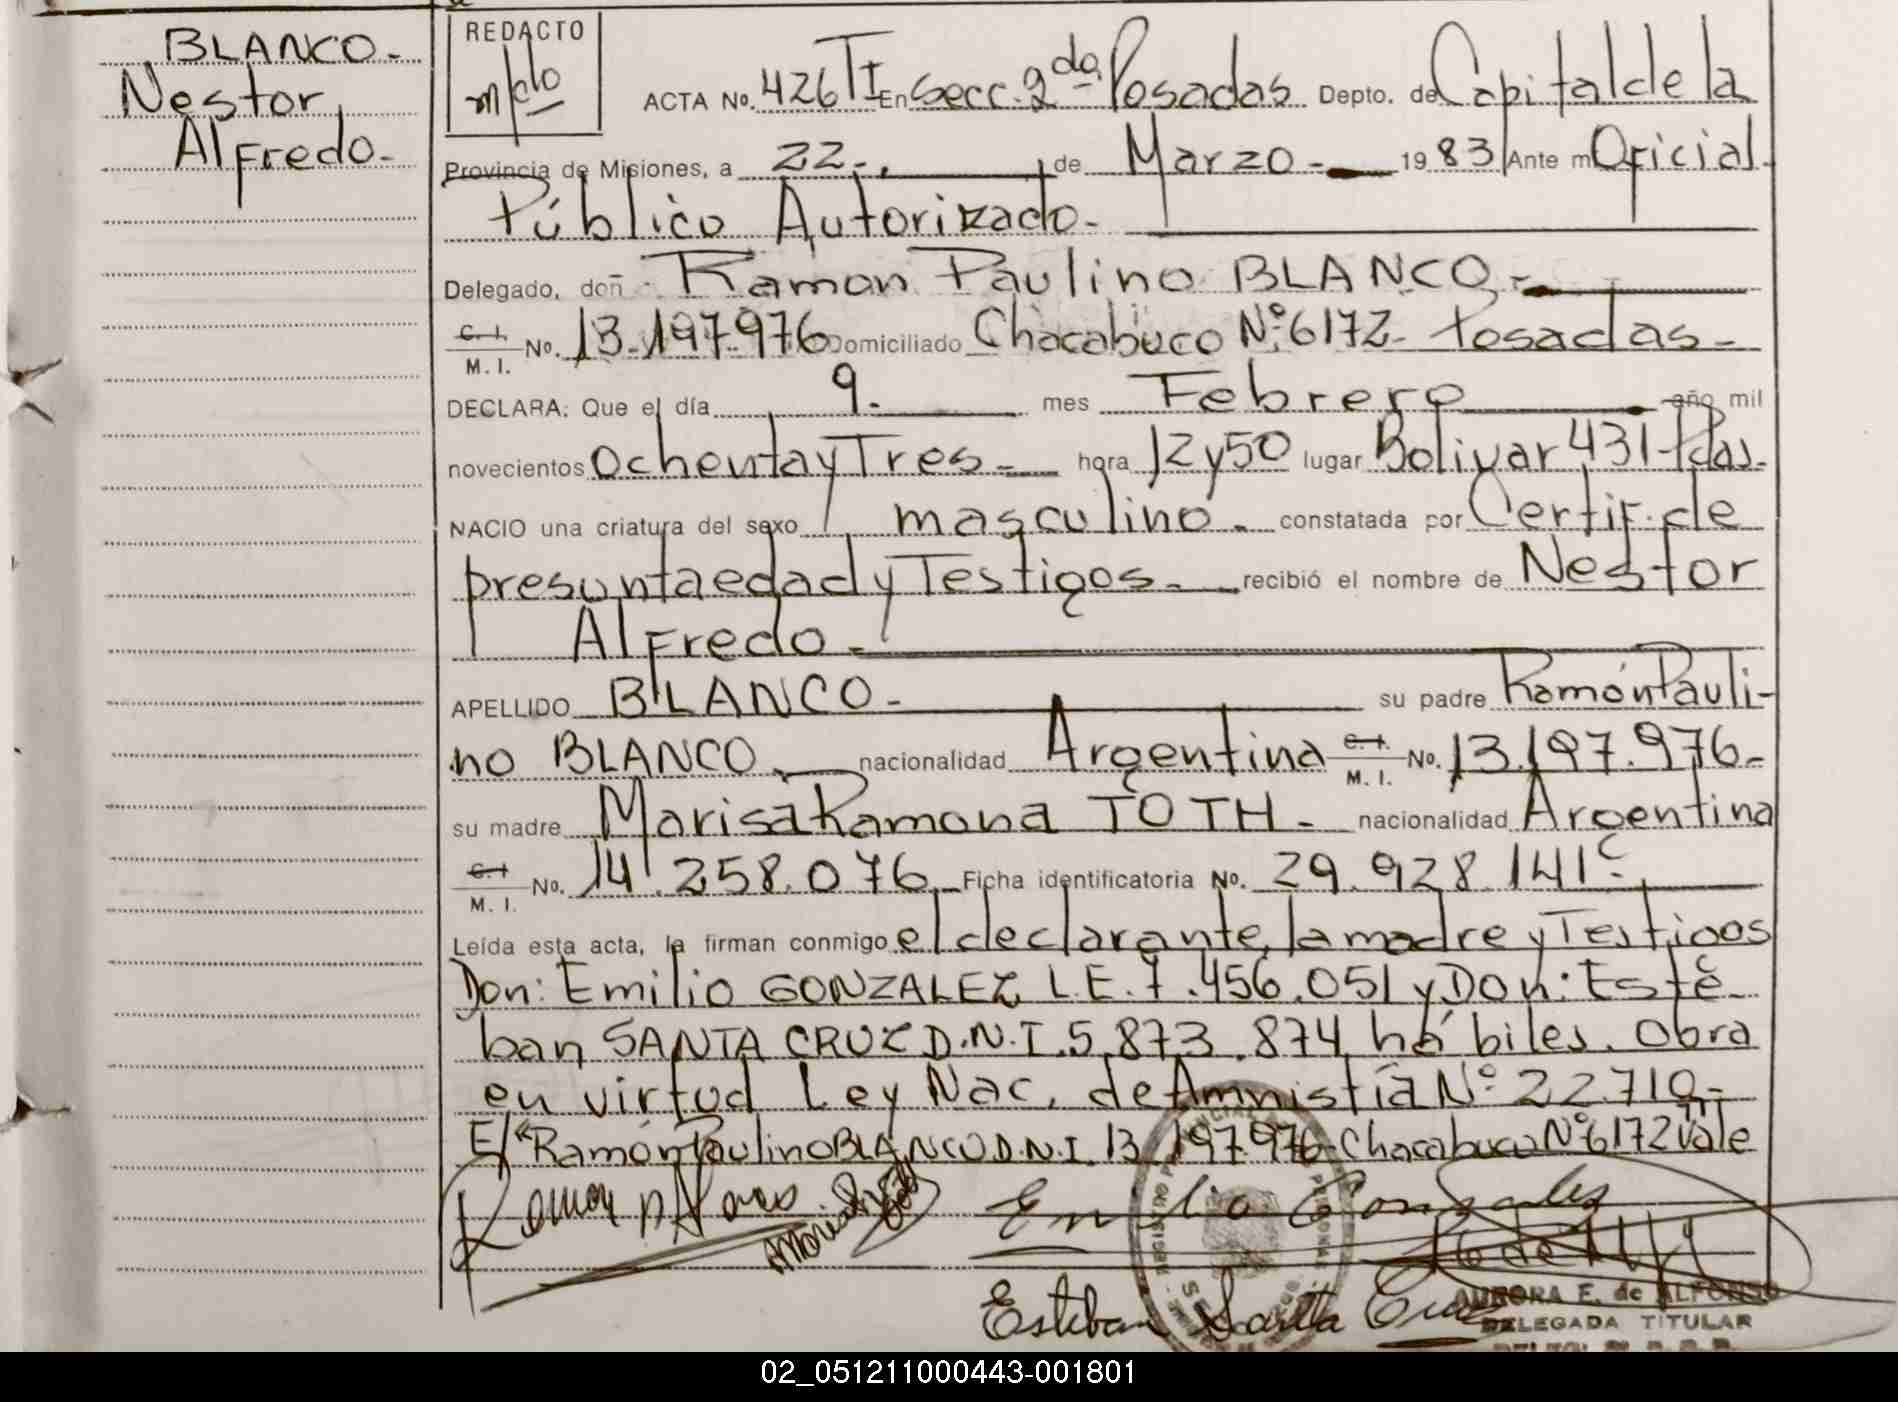 BLANCO-
Nestor
Alfredo-
REDACTO
ACTA No. 426 TI En Secc. 2da. Posadas Depto. de Capital de la
Provincia de Misiones, a 22- de Marzo- 1983 Ante mi Oficial
Público Autorizado-
Delegado, don Ramon Paulino BLANCO-
C. I. / M. I. No. 13.197.976 Domiciliado Chacabuco Nº 6172- Posadas-
DECLARA: Que el día 9- mes Febrero año mil
novecientos Ochenta y Tres- hora 12 y 50 lugar Bolivar 431-Pdas.
NACIO una criatura del sexo masculino- constatada por Certif. de
presunta edad y Testigos- recibió el nombre de Nestor
Alfredo-
APELLIDO BLANCO- su padre Ramón Pauli-
no BLANCO- nacionalidad Argentina C. I. / M. I. No. 13.197.976-
su madre Marisa Ramona TOTH- nacionalidad Argentina
C. I. / M. I. No. 14.258.076- Ficha identificatoria No. 29.928.141
Leída esta acta, la firman conmigo el declarante, la madre y Testigos
Don: Emilio GONZALEZ L.E. 7.456.051 y Don: Este-
ban SANTA CRUZ D.N.I. 5.873.874 hábiles. Obra
en virtud Ley Nac. de Amnistía Nº 22.710-
E/ "Ramón Paulino BLANCO D.N.I. 13.197.976-Chacabuco Nº 6172" Vale
Ramon P Blanco
Emilio Gonzales
Esteban Santa Cruz
REGISTRO PROVINCIAL
AURORA E. de ALFONSO
DELEGADA TITULAR
02_051211000443-001801